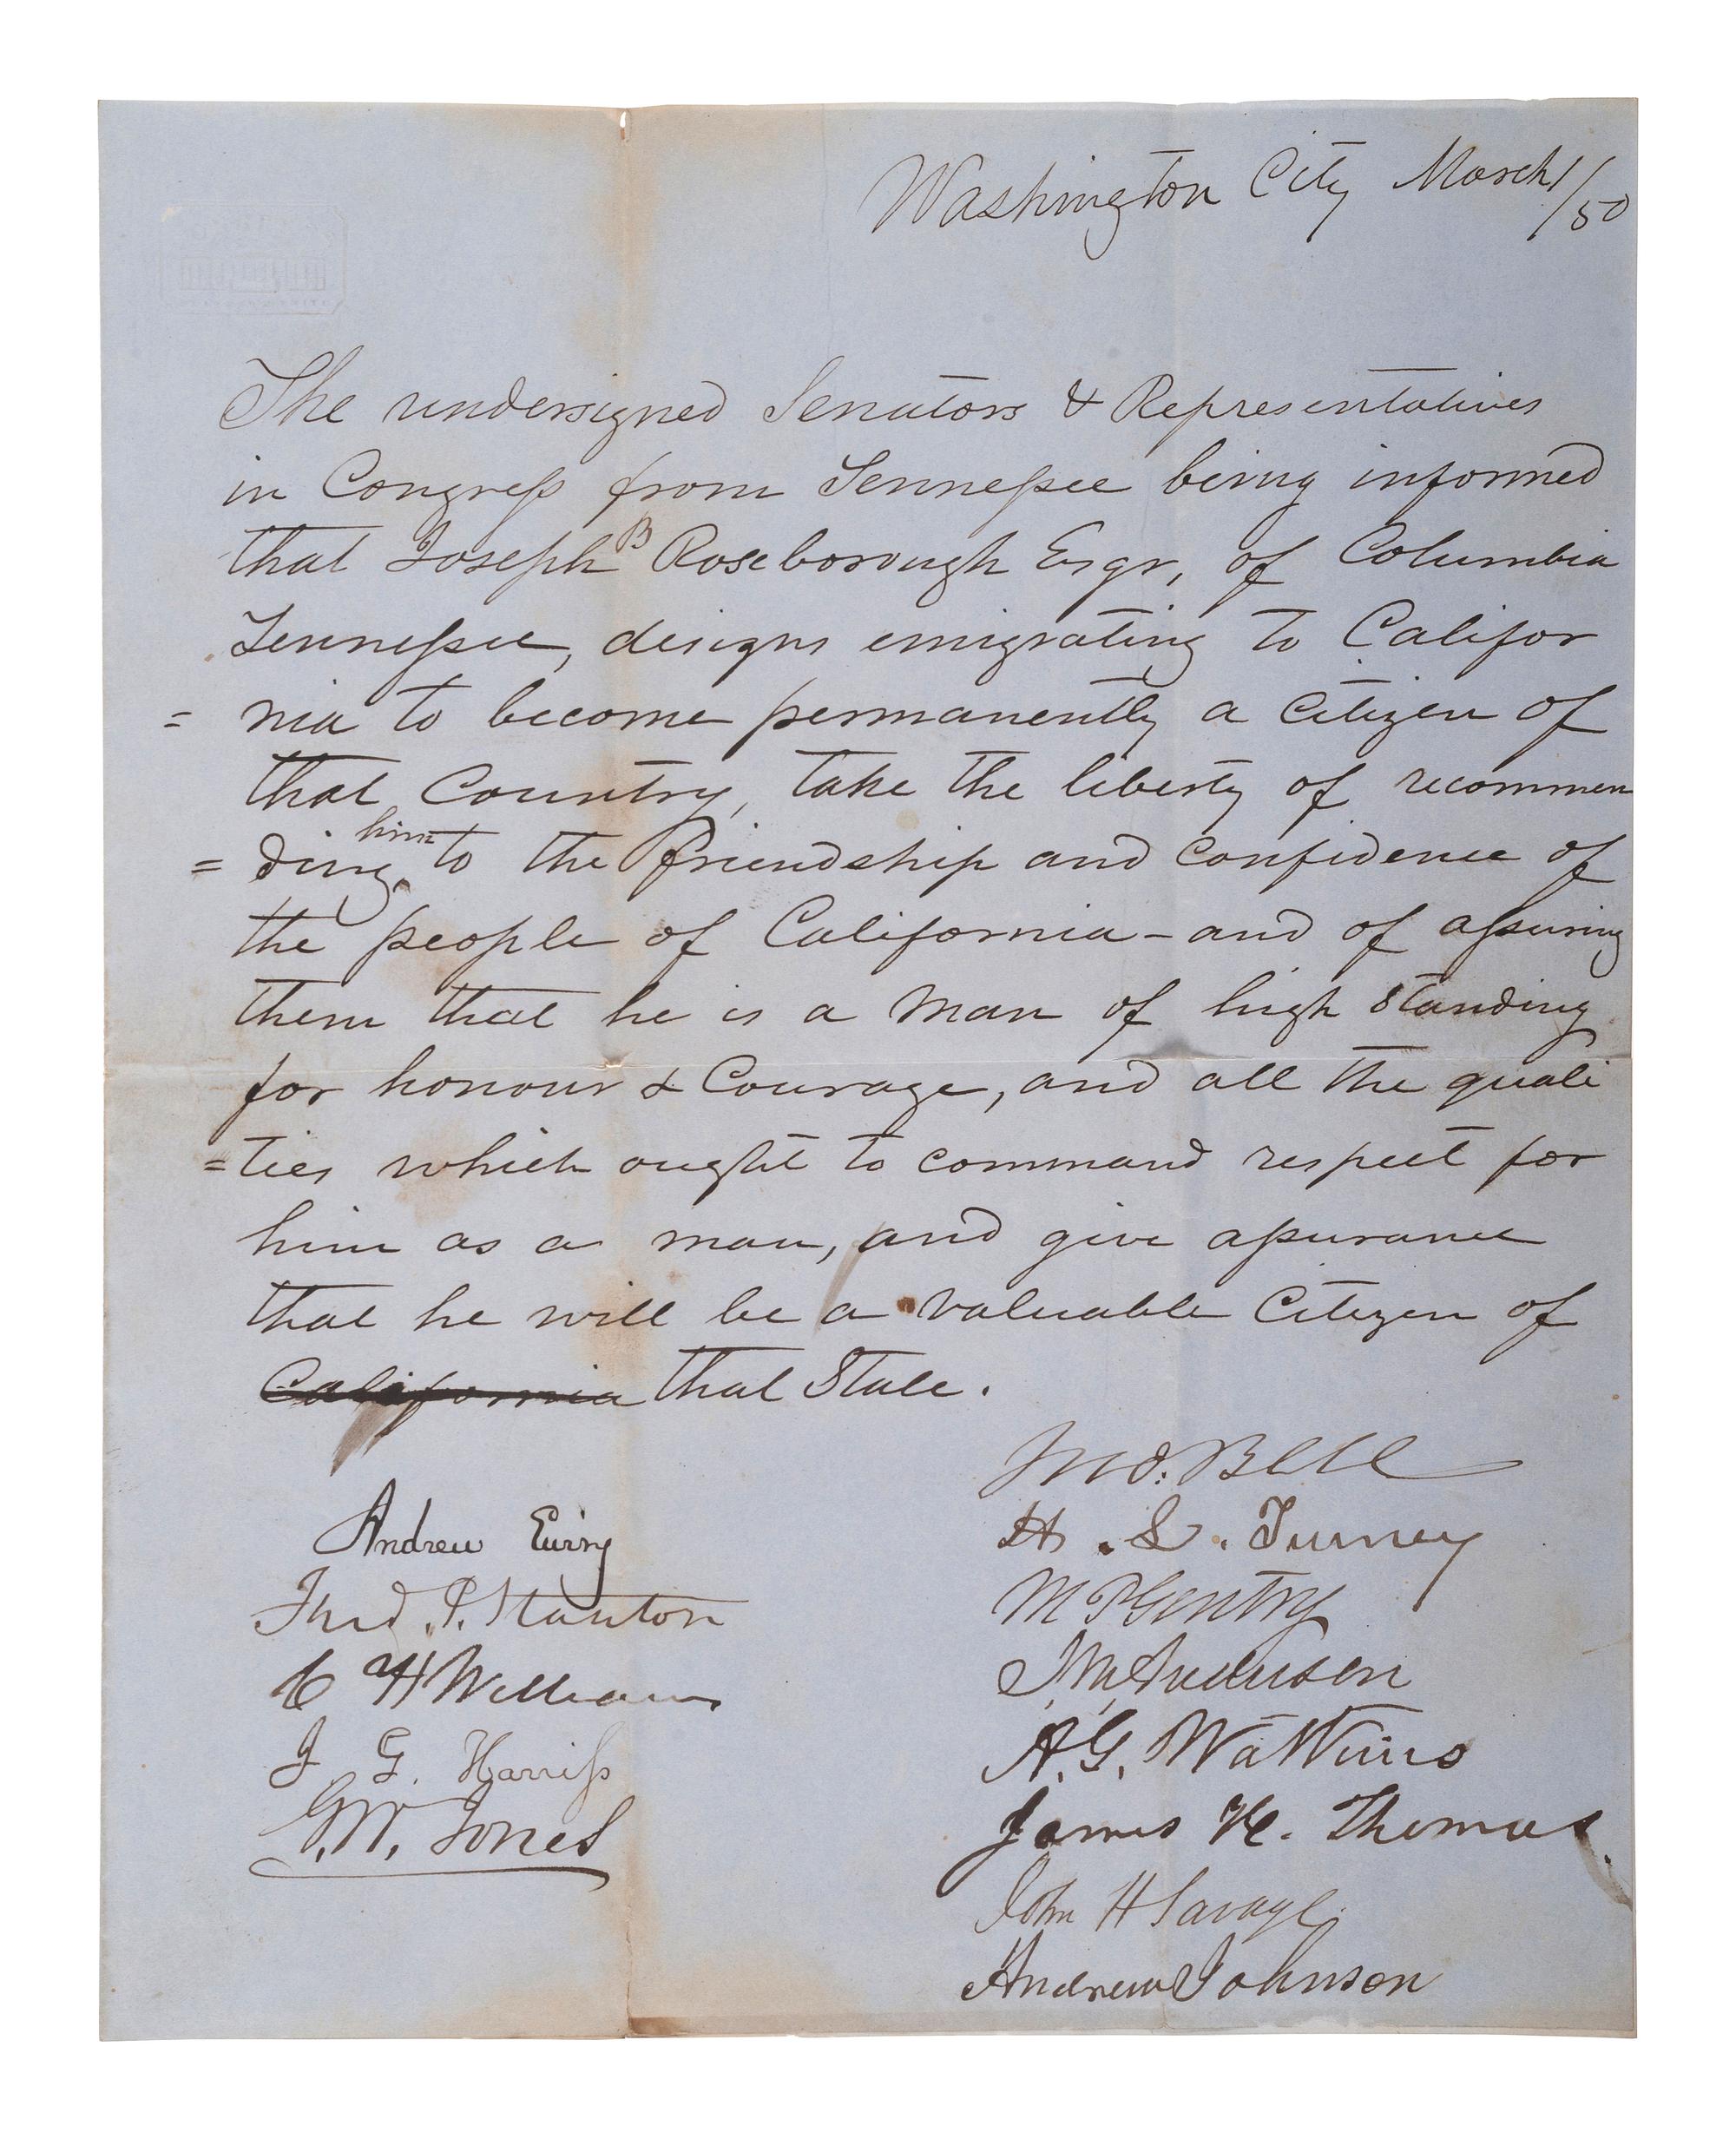 Washington City March 1/50
The undersigned Senators & Representatives
in Congress from Tennessee being informed
that Joseph B Roseborough Esqr, of Columbia
Tennessee, designs emigrating to Califor
= nia to become permanently a citizen of
that Country, take the liberty of recommen
= ding him to the friendship and confidence of
the people of California - and of assuring
them that he is a man of high standing
for honour & Courage, and all the quali
= ties which ought to command respect for
him as a man, and give assurance
that he will be a valuable Citizen of
California that State.
Jno. Bell
H. L. Turney
M P Gentry
J M Anderson
A. G. Watkins
James H. Thomas
John H Savage
Andrew Johnson
Andrew Ewing
Fred. P. Stanton
C H Williams
I G. Harriss
G. W. Jones